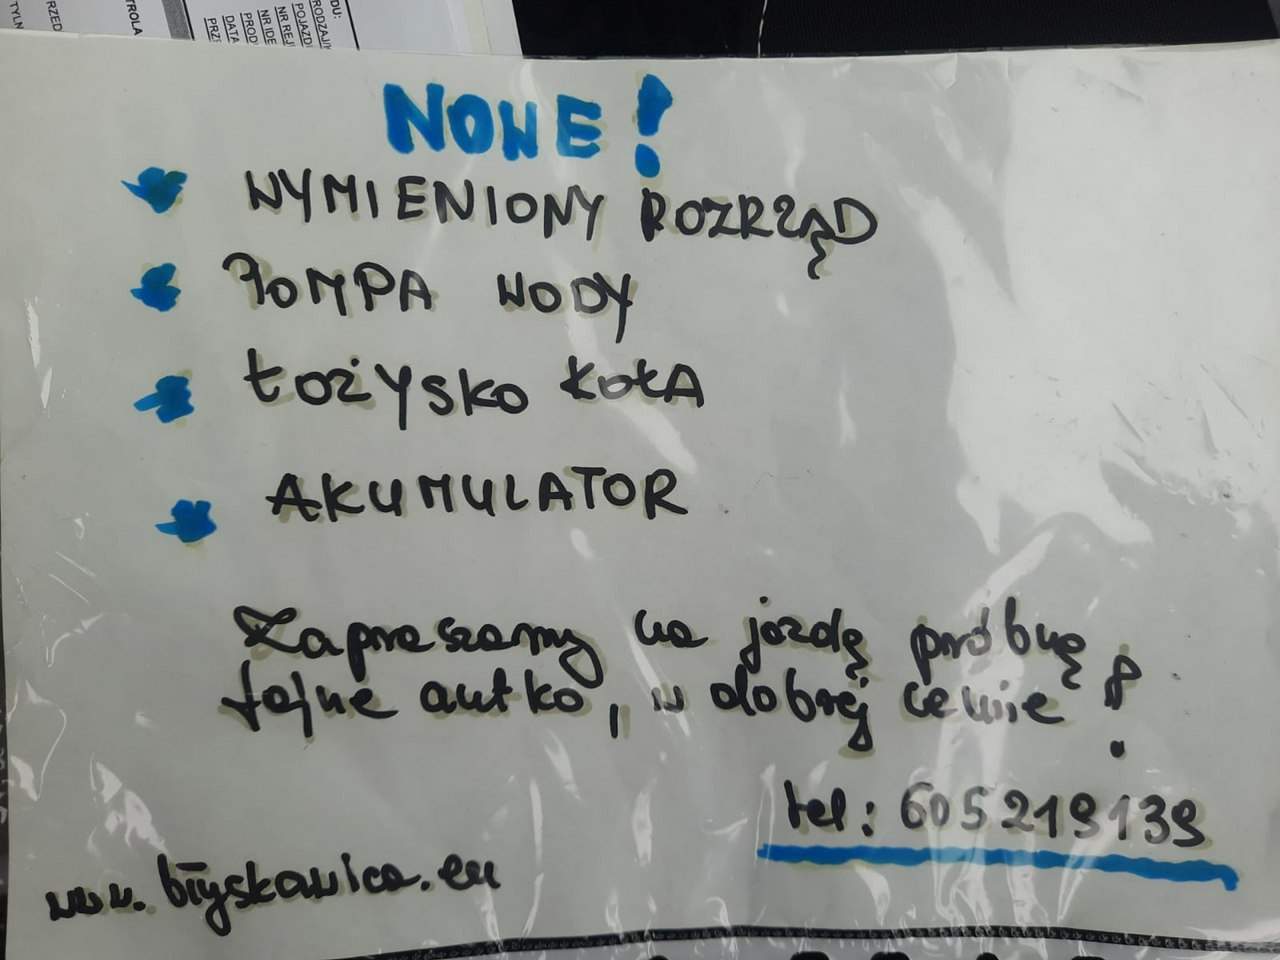 TYLN
RZED
TROLA
DU:
RODZAJ
POJAZD
NR REJ
NR IDE
PROD
DATA
PRZE
NOWE!
WYMIENIONY ROZRZĄD
POMPA WODY
ŁOŻYSKO KOŁA
AKUMULATOR
Zapraszamy na jazdę próbną
fajne autko, w dobrej cenie!
tel: 605219139
www.błyskawica.eu